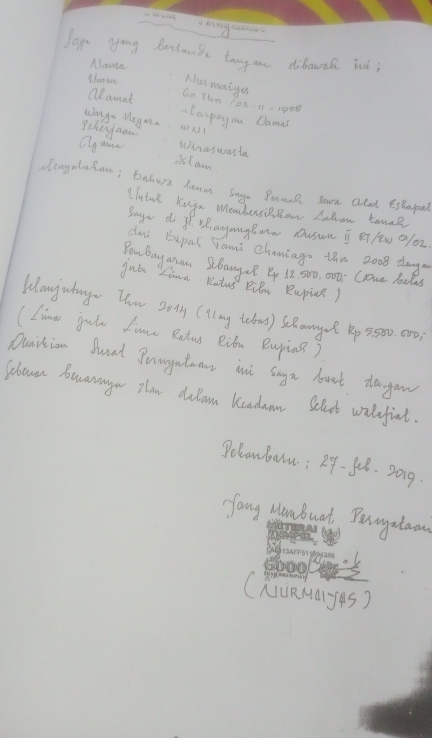 Surat Pernyataan
Saya yang bertanda tangan dibawah ini ;
Nama : Nurmaiyas
Umur : 60 Thn /03-11-1958
Alamat : Marpoyan Damai
Warga Negara : WNI
Pekerjaan : Wiraswasta
Agama : Islam
Menyatakan ; Bahwa benar saya Pernah Sewa Alat Eskapal
Untuk Kerja Membersihkan Lahan tanah
Saya di Jl. Dusun II RT/RW 01/02.
dari Bapak Yami Chaniago thn 2008 dengan
Pembayaran Sebanyak Rp 12.500.000; (Dua belas
juta Lima Ratus Ribu Rupiah)
Selanjutnya Thn 2014 (Ulang tebas) Sebanyak Rp 5.500.000;
(Lima juta Lima Ratus Ribu Rupiah)
Demikian Surat Pernyataan ini saya buat dengan
Sebenar benarnya dan dalam Keadaan Sehat walafiat.
Pekanbaru ; 27-feb-2019.
Yang Membuat Pernyataan
METERAI
TEMPEL
6000
(NURMAIYAS)